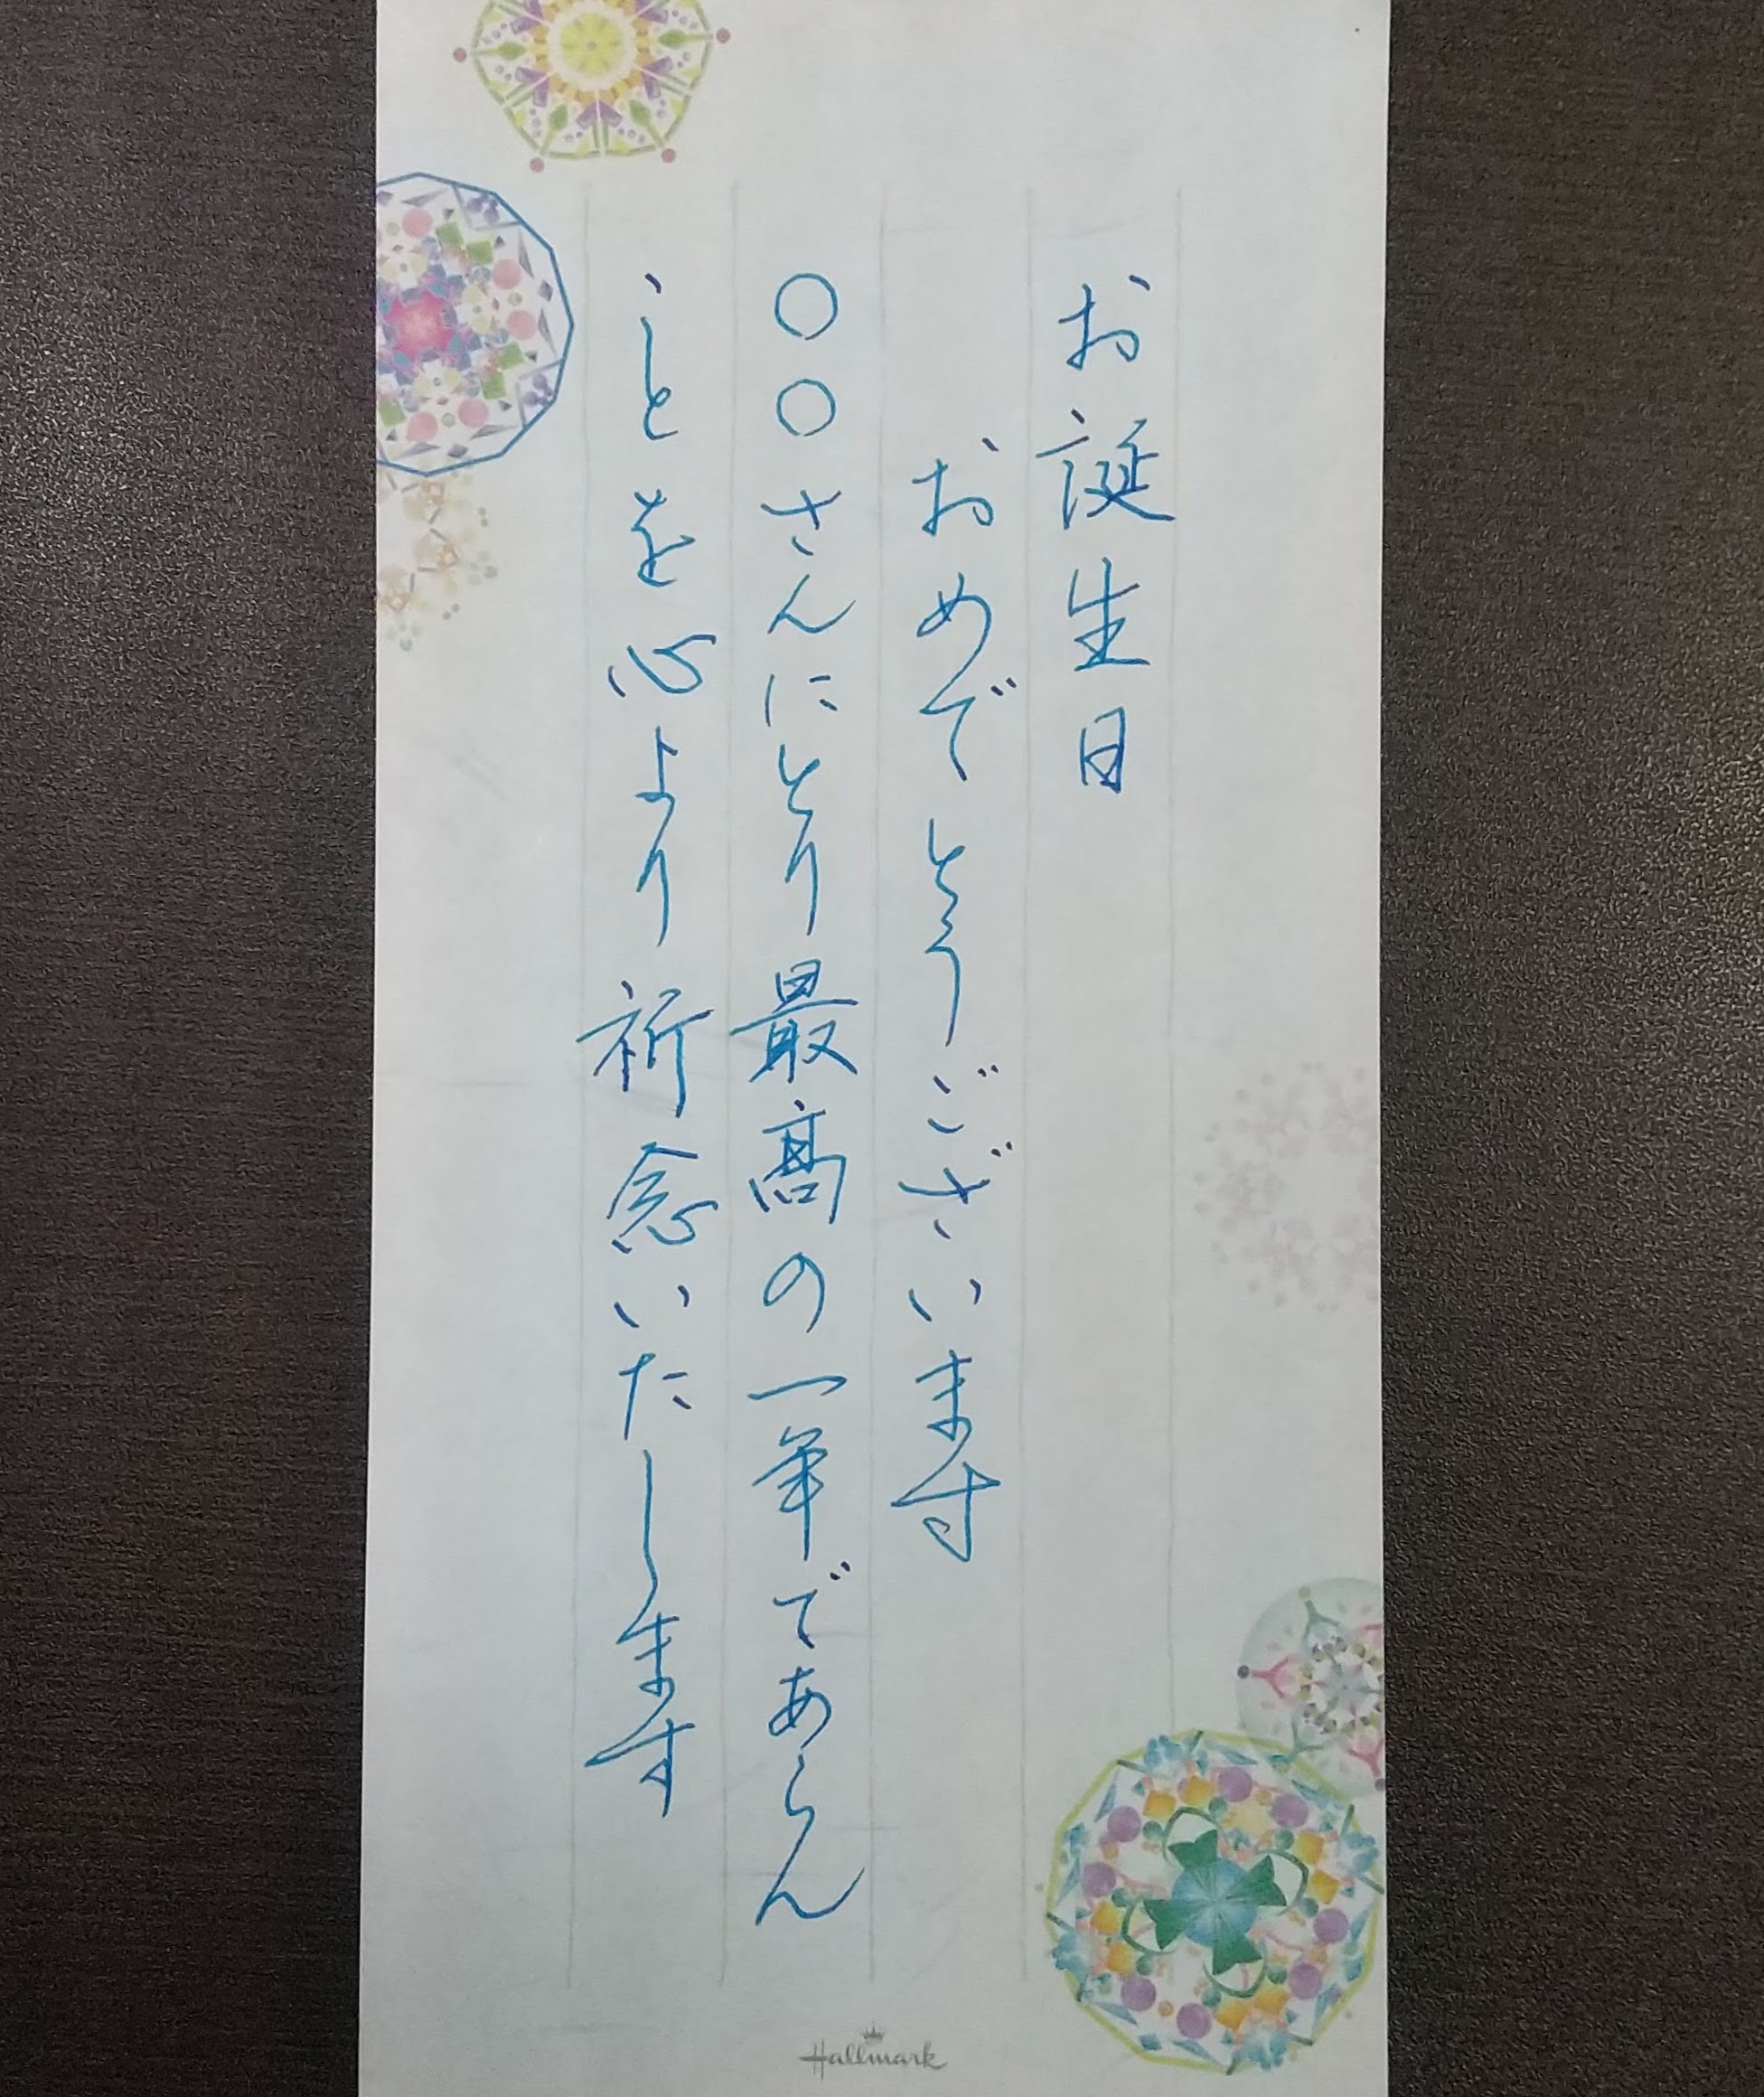 お誕生日
おめでとうございます
〇〇さんにとり最髙の一年であらん
ことを心より祈念いたします
Hallmark